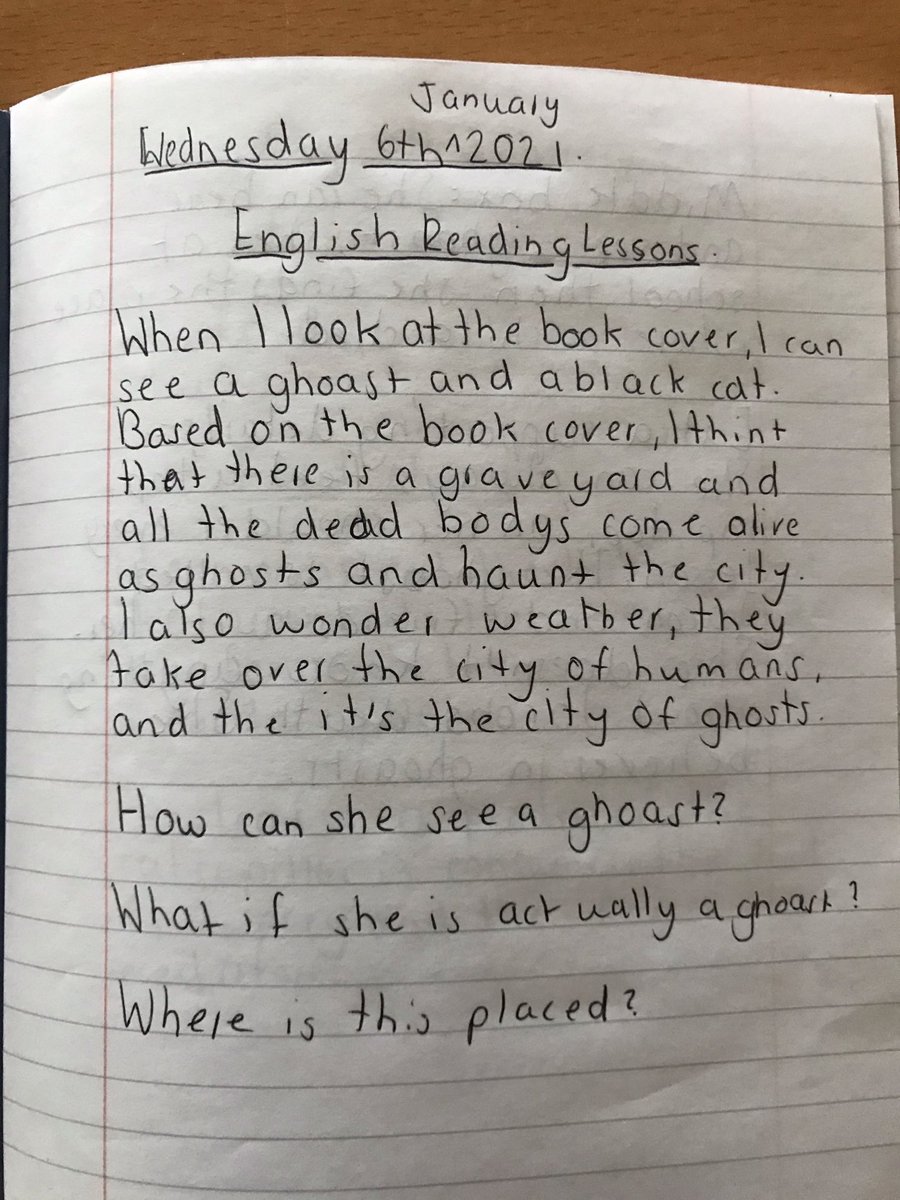 January
Wednesday 6th^2021.
English Reading Lessons.
When I look at the book cover, I can
see a ghoast and a black cat.
Based on the book cover, I thint
that there is a graveyard and
all the dead bodys come alive
as ghosts and haunt the city.
I also wonder weather, they
take over the city of humans,
and the it's the city of ghosts.
How can she see a ghoast?
What if she is actually a ghoast?
Where is this placed?